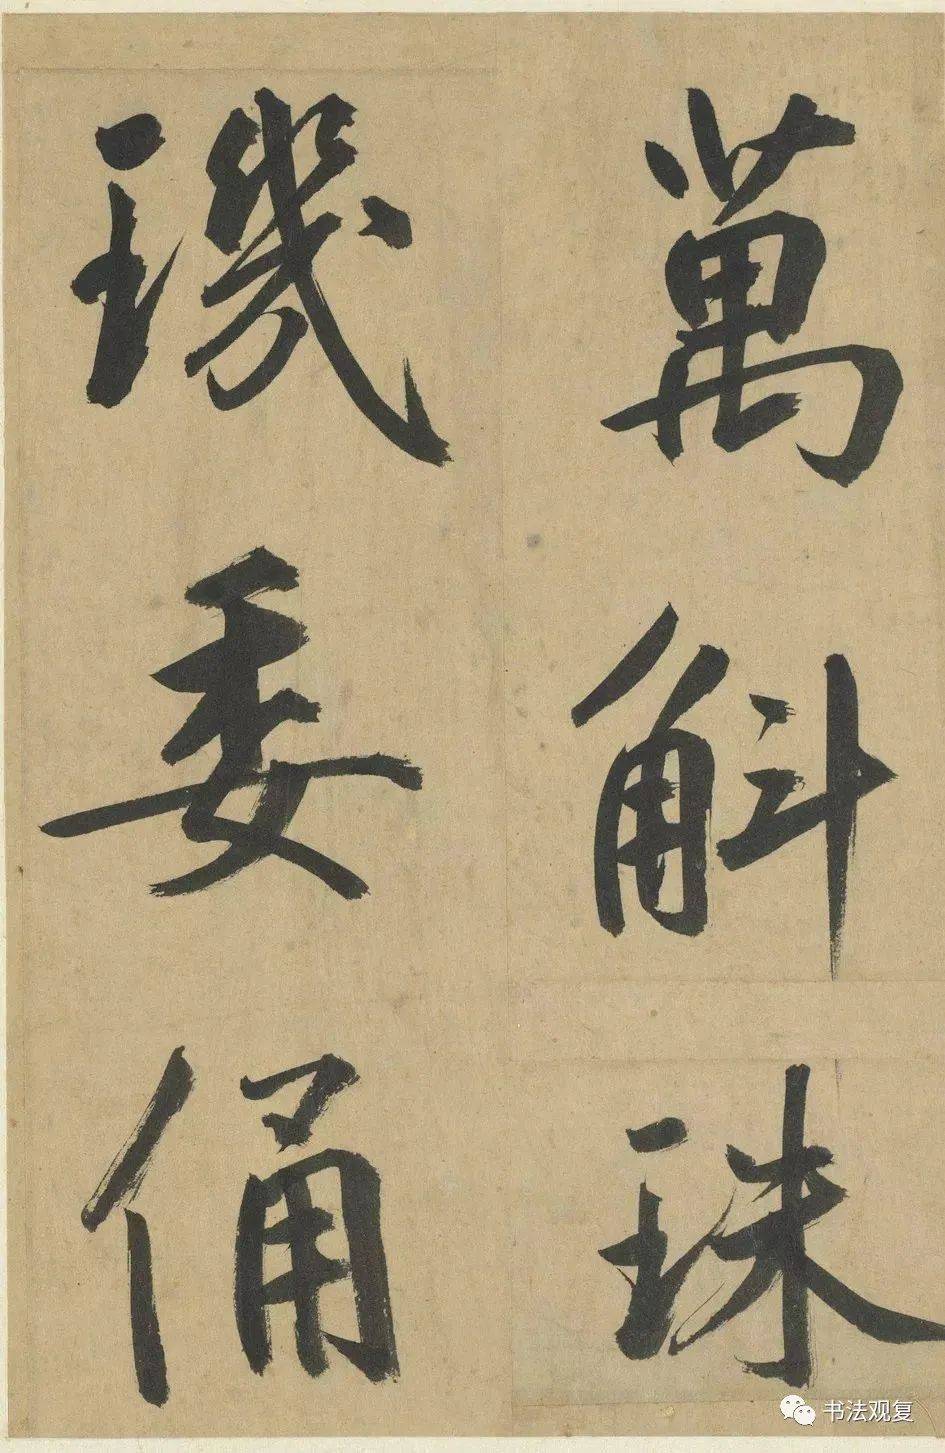 萬斛珠
璣委俑
书法观复